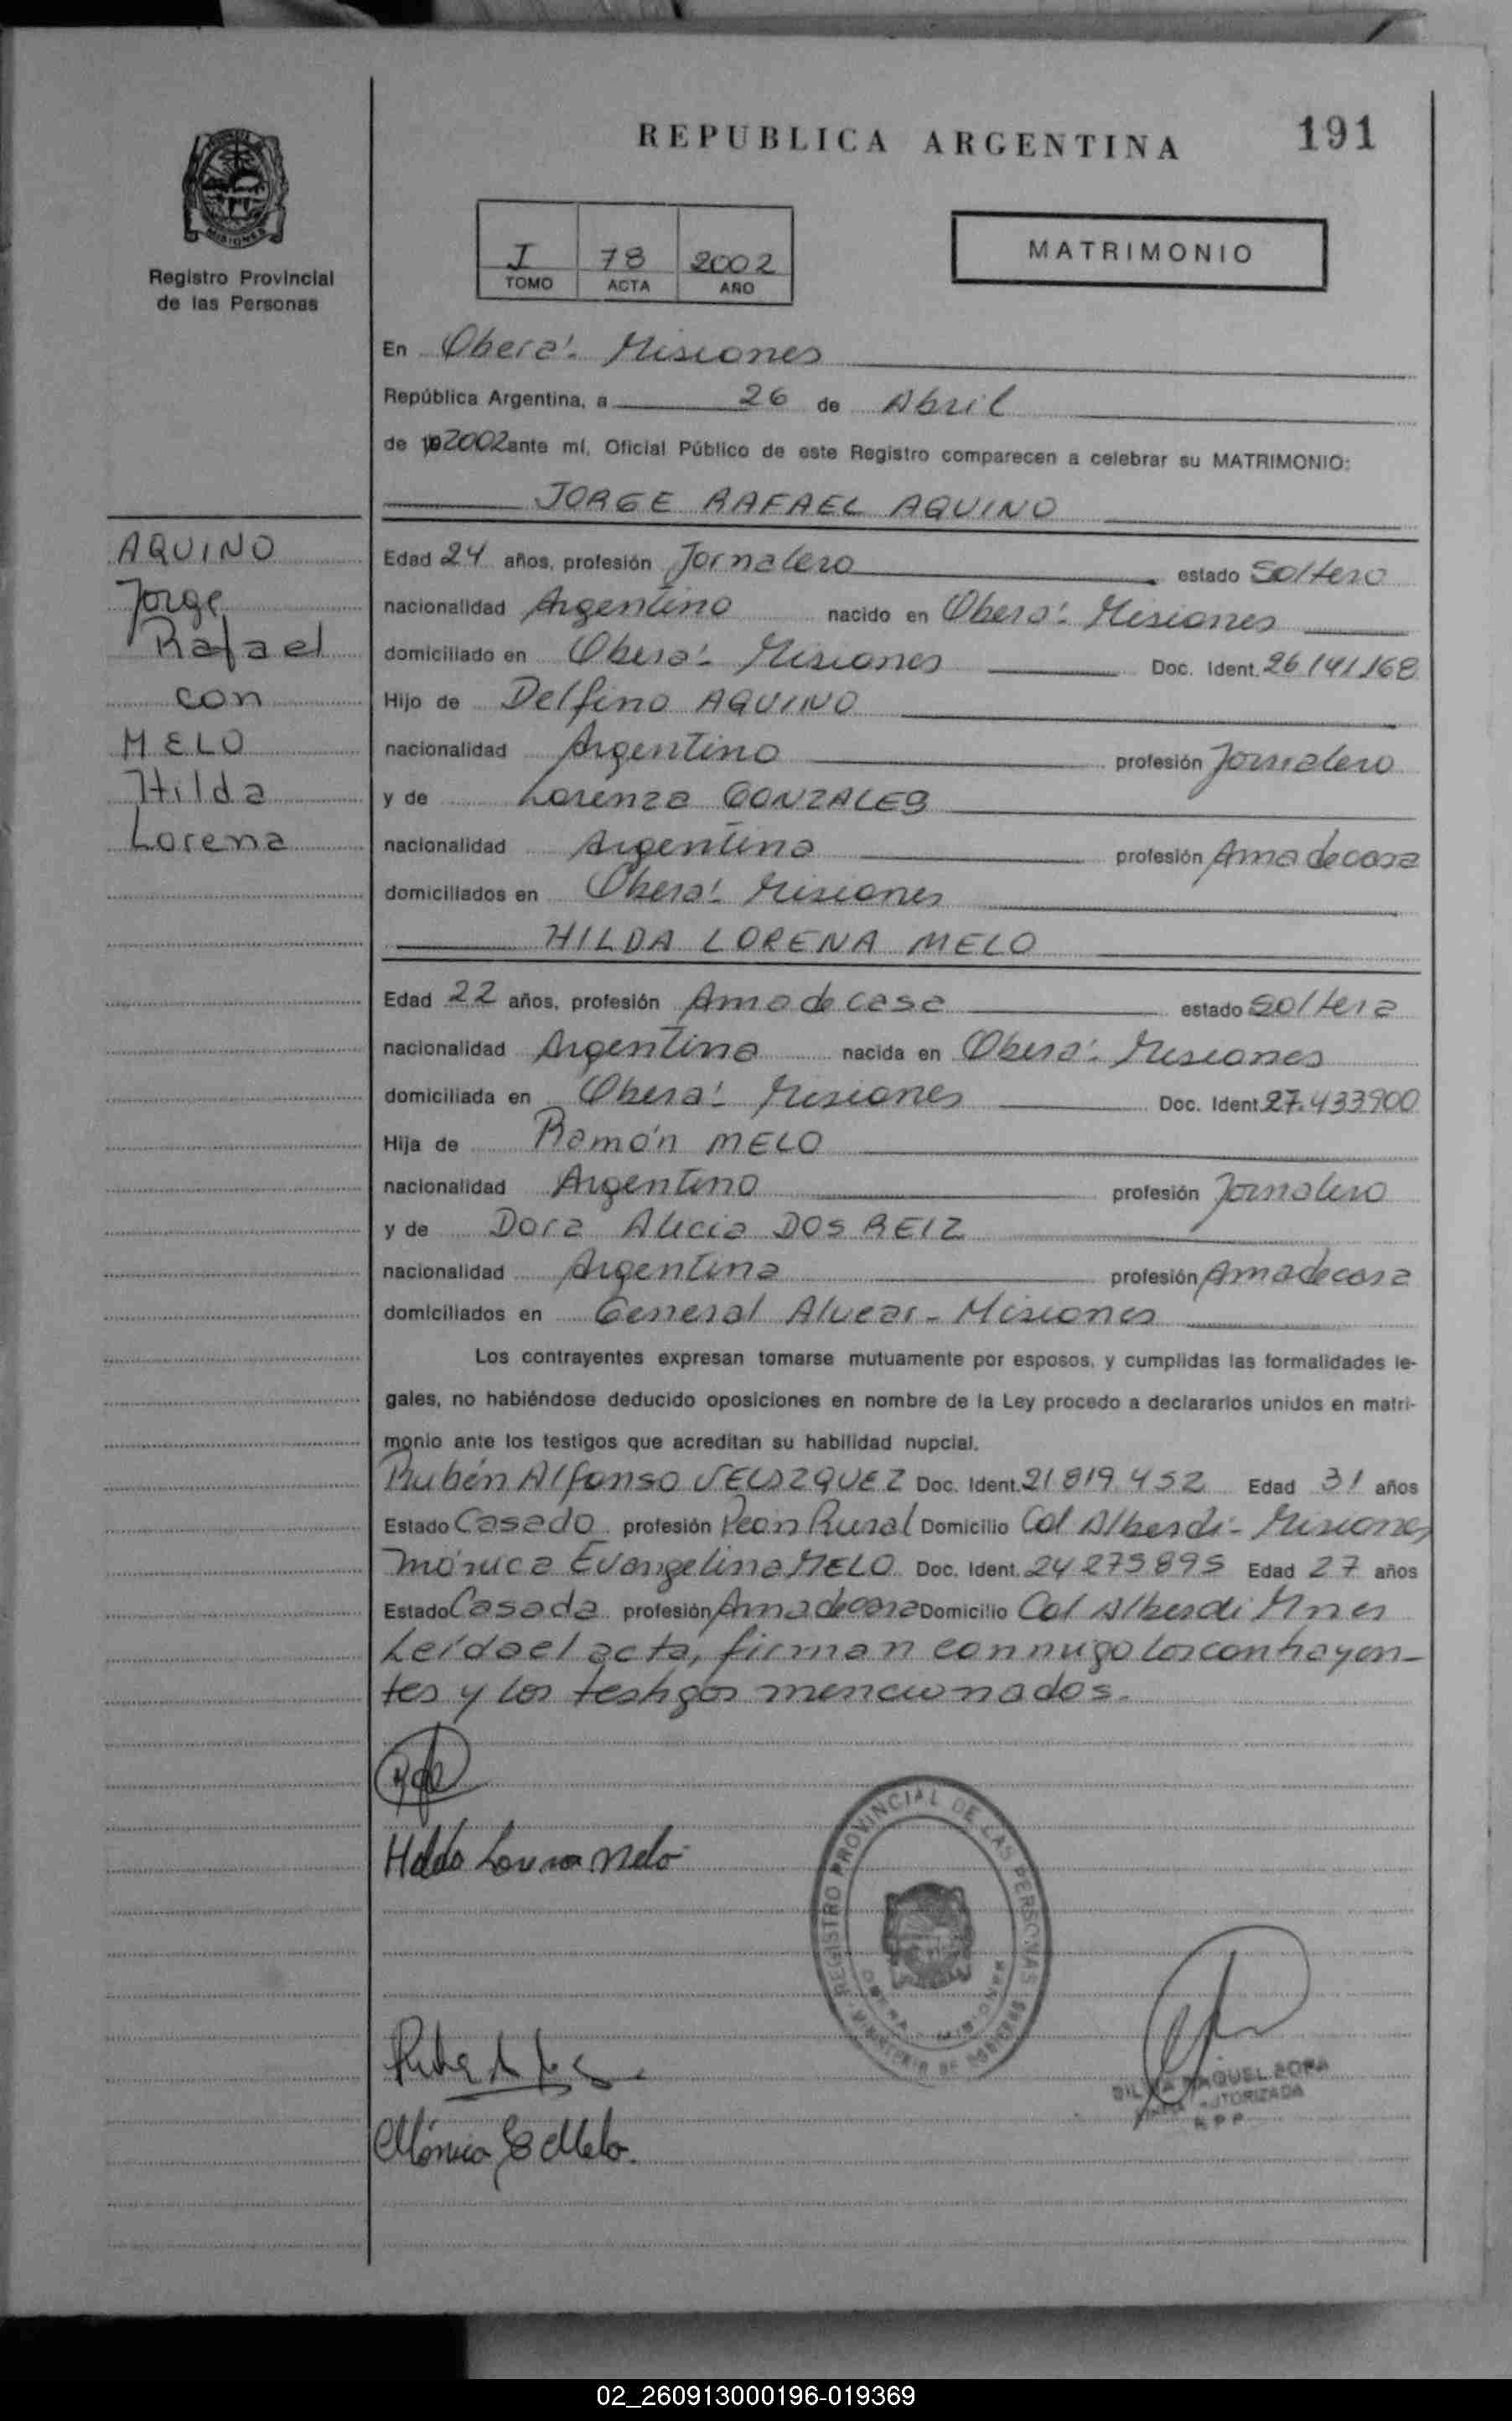 REPUBLICA ARGENTINA
191
MISIONES
Registro Provincial
de las Personas
I 78 2002
TOMO ACTA AÑO
MATRIMONIO
En Oberá. Misiones
República Argentina, a 26 de Abril
de 192002 ante mí, Oficial Público de este Registro comparecen a celebrar su MATRIMONIO:
JORGE RAFAEL AQUINO
AQUINO
Jorge
Rafael
con
MELO
Hilda
Lorena
Edad 24 años, profesión Jornalero estado Soltero
nacionalidad Argentino nacido en Oberá. Misiones
domiciliado en Oberá. Misiones Doc. Ident. 26.141.168
Hijo de Delfino AQUINO
nacionalidad Argentino profesión Jornalero
y de Lorenza GONZALES
nacionalidad Argentina profesión Ama de casa
domiciliados en Oberá. Misiones
HILDA LORENA MELO
Edad 22 años, profesión Ama de casa estado Soltera
nacionalidad Argentina nacida en Oberá. Misiones
domiciliada en Oberá. Misiones Doc. Ident. 27.433900
Hija de Ramón MELO
nacionalidad Argentino profesión Jornalero
y de Dora Alicia DOS REIZ
nacionalidad Argentina profesión Ama de casa
domiciliados en General Alvear - Misiones
Los contrayentes expresan tomarse mutuamente por esposos, y cumplidas las formalidades le-
gales, no habiéndose deducido oposiciones en nombre de la Ley procedo a declararlos unidos en matri-
monio ante los testigos que acreditan su habilidad nupcial.
Rubén Alfonso VELAZQUEZ Doc. Ident. 21 819.452 Edad 31 años
Estado Casado profesión Peón Rural Domicilio Col Alberdi - Misiones
Mónica Evangelina MELO Doc. Ident. 24 275895 Edad 27 años
Estado Casada profesión Ama de casa Domicilio Col Alberdi Mnes
Leída el acta, firman conmigo los contrayen-
tes y los testigos mencionados.
Hilda Lorena Melo
REGISTRO PROVINCIAL DE LAS PERSONAS
MINISTERIO DE GOBIERNO
OBERA - MISIONES
RAQUEL
AUTORIZADA
R P P
Mónica E Melo.
02_260913000196-019369